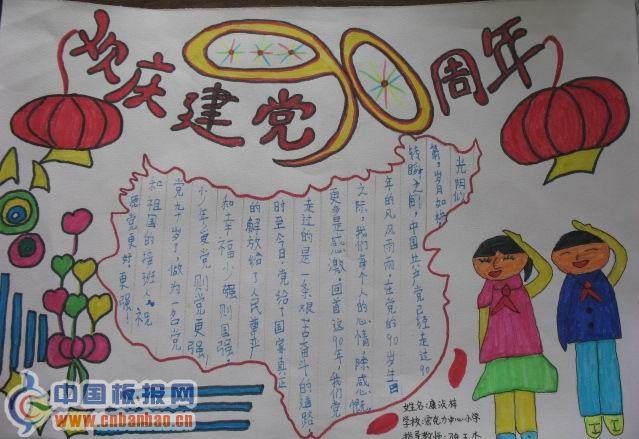 欢庆建党90周年
光阴似
箭,岁月如梭
转瞬之间,中国共产党已经走过90
年的风风雨雨在党的90岁生日
之际,我们每个人的心情除感慨
更多是感激。回首这90年,我们党
走过的是一条艰苦奋斗的道路,
时至今日,党给了国家真正
的解放给了人民事产
和幸福少强则国强,
少年爱党则党更强,
党九十岁了,做为一名党
和祖国的接班人,祝
愿党更好,更强!
姓名:康
学校:宏克力中心小学
指导教师:
中国板报网
www.cnbanbao.cn